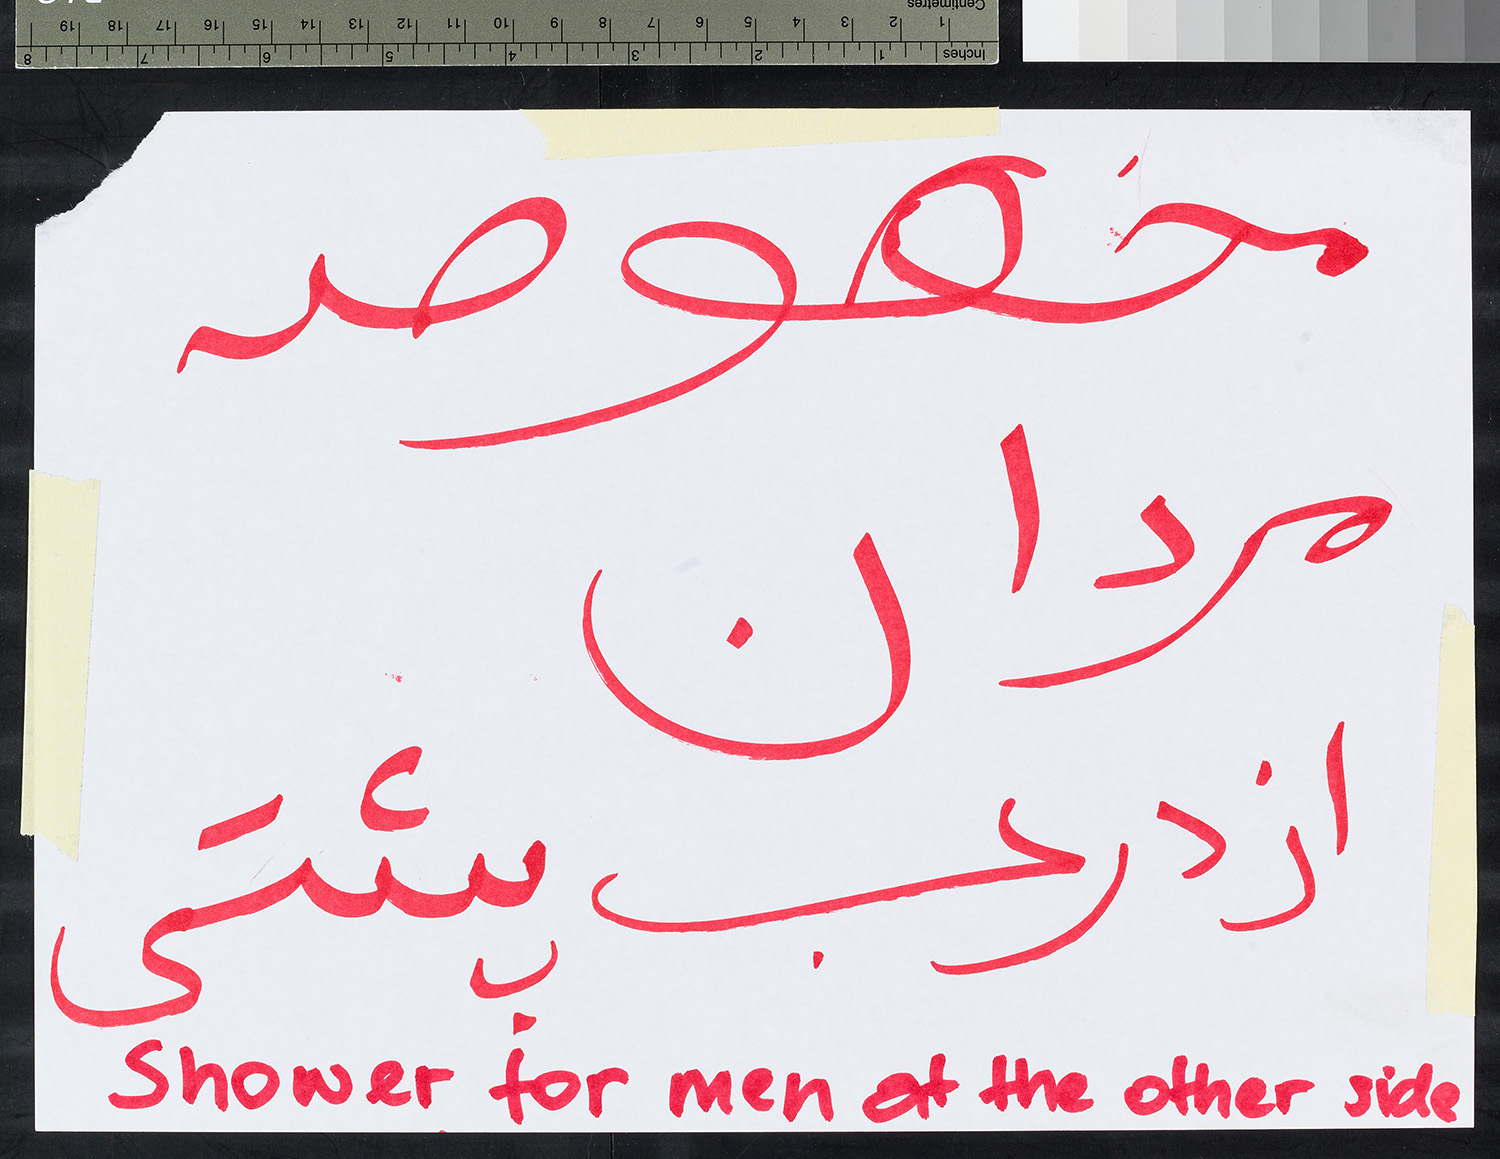 Centimetres
1 2 3 4 5 6 7 8 9 10 11 12 13 14 15 16 17 18 19
Inches 1 2 3 4 5 6 7 8
مخصوصه
مردان
از در حب پئتی
Shower for men at the other side